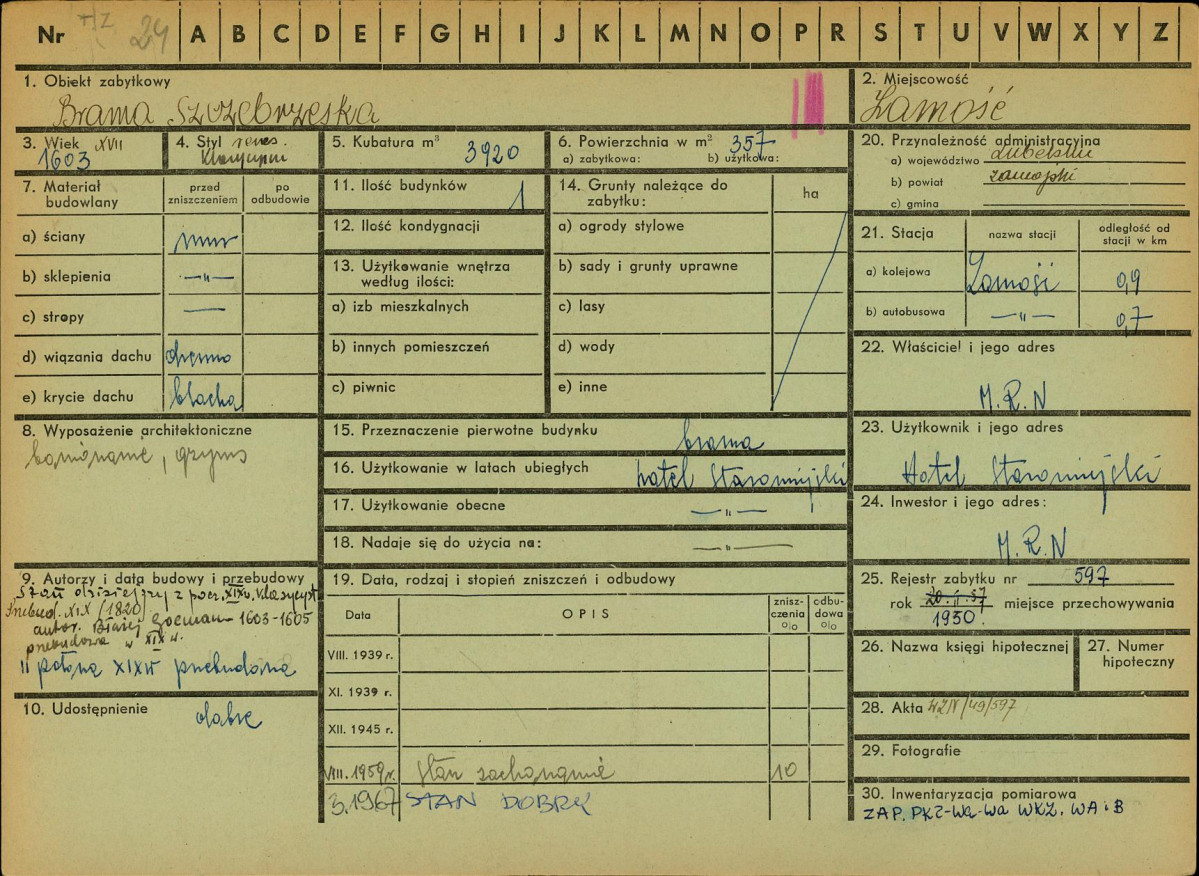 Nr 24 A B C D E F G H I J K L M N O P R S T U V W X Y Z
1. Obiekt zabytkowy
Brama Szczebrzeska
2. Miejscowość
Zamość
3. Wiek XVII
1603
4. Styl renes.
5. Kubatura m³ 3920
6. Powierzchnia w m² 357
a) zabytkowa: b) użytkowa:
7. Materiał budowlany
przed zniszczeniem
po odbudowie
a) ściany mur
b) sklepienia —"—
c) stropy —
d) wiązania dachu drewno
e) krycie dachu blacha
8. Wyposażenie architektoniczne
boniowanie, gzyms
9. Autorzy i data budowy i przebudowy
Stan dzisiejszy z pocz. XIX w. klasycyst
Przebud. XIX (1820)
autor. Błażej Gocman 1603-1605
przebudowa w XIX w.
II połowa XIX w przebudowa
10. Udostępnienie dobre
11. Ilość budynków 1
12. Ilość kondygnacji
13. Użytkowanie wnętrza według ilości:
a) izb mieszkalnych
b) innych pomieszczeń
c) piwnic
14. Grunty należące do zabytku:
ha
a) ogrody stylowe
b) sady i grunty uprawne
c) lasy
d) wody
e) inne
15. Przeznaczenie pierwotne budynku brama
16. Użytkowanie w latach ubiegłych hotel Staromiejski
17. Użytkowanie obecne —"—
18. Nadaje się do użycia na: —"—
19. Data, rodzaj i stopień zniszczeń i odbudowy
Data
OPIS
znisz-czenia %
odbu-dowa %
VIII. 1939 r.
XI. 1939 r.
XII. 1945 r.
VIII. 1959 r. Stan zachowania 10
3.1967 STAN DOBRY
20. Przynależność administracyjna
a) województwo Lubelskie
b) powiat zamojski
c) gmina
21. Stacja
nazwa stacji
odległość od stacji w km
a) kolejowa Zamość 0,9
b) autobusowa —"— 0,7
22. Właściciel i jego adres
M.R.N
23. Użytkownik i jego adres
Hotel Staromiejski
24. Inwestor i jego adres:
M.R.N
25. Rejestr zabytku nr 597
rok 20.II.57 miejsce przechowywania
1950.
26. Nazwa księgi hipotecznej
27. Numer hipoteczny
28. Akta
29. Fotografie
30. Inwentaryzacja pomiarowa
ZAP. PKZ-Wa-wa WKZ. WA i B